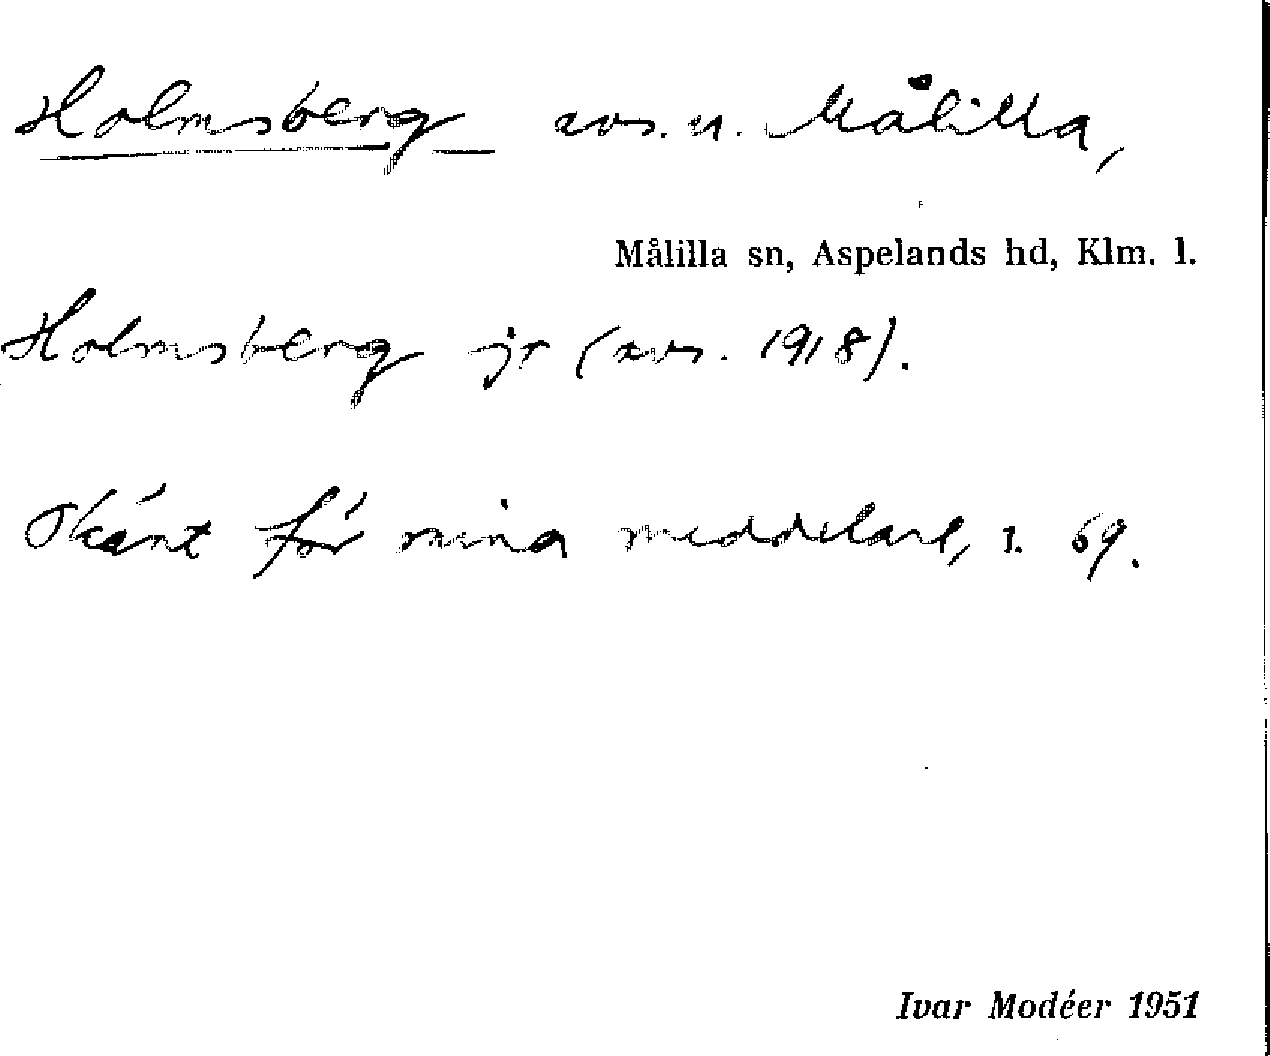 Holmsberg avs. u. Målilla,
Målilla sn, Aspelands hd, Klm. l.
Holmsberg jr (avs. 1918).
Okänt för mina meddelare, s. 69.
Ivar Modéer 1951